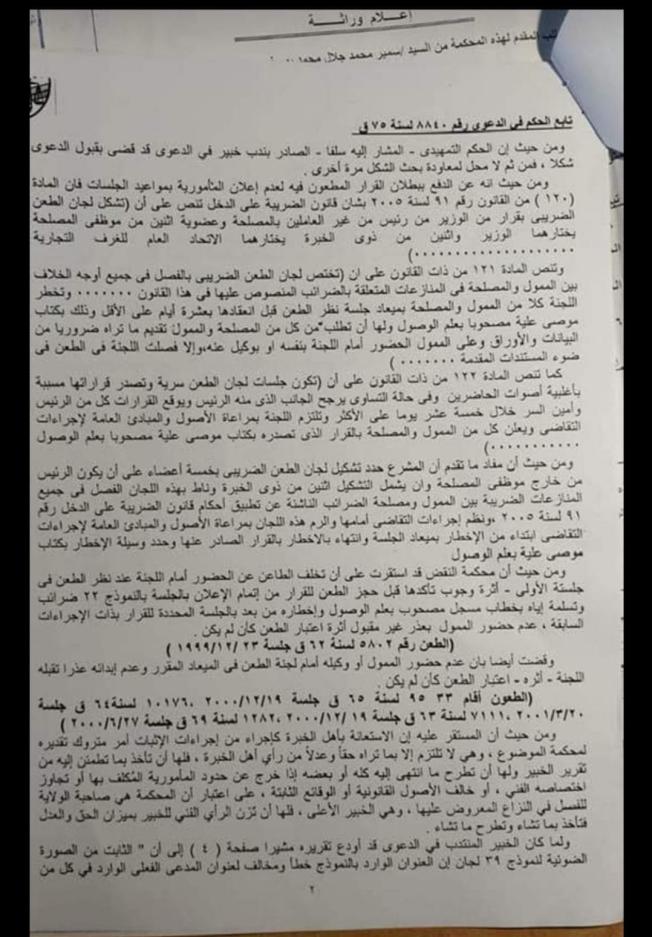 إعـــلام وراثـــة
المقدم لهذه المحكمة من السيد /سمير محمد جلال
تابع الحكم في الدعوى رقم ٨٨٤٠ لسنة ٧٥ ق
ومن حيث إن الحكم التمهيدى - المشار إليه سلفا - الصادر بندب خبير في الدعوى قد قضى بقبول الدعوى
شكلا ، فمن ثم لا محل لمعاودة بحث الشكل مرة أخرى .
ومن حيث انه عن الدفع ببطلان القرار المطعون فيه لعدم إعلان المأمورية بمواعيد الجلسات فان المادة
(١٢٠) من القانون رقم ٩١ لسنة ٢٠٠٥ بشان قانون الضريبة على الدخل تنص على أن (تشكل لجان الطعن
الضريبى بقرار من الوزير من رئيس من غير العاملين بالمصلحة وعضوية اثنين من موظفى المصلحة
يختارهما الوزير واثنين من ذوى الخبرة يختارهما الاتحاد العام للغرف التجارية
....................)
وتنص المادة ١٢١ من ذات القانون على ان (تختص لجان الطعن الضريبى بالفصل فى جميع أوجه الخلاف
بين الممول والمصلحة فى المنازعات المتعلقة بالضرائب المنصوص عليها فى هذا القانون ....... وتخطر
اللجنة كلا من الممول والمصلحة بميعاد جلسة نظر الطعن قبل انعقادها بعشرة أيام على الأقل وذلك بكتاب
موصى علية مصحوبا بعلم الوصول ولها أن تطلب من كل من المصلحة والممول تقديم ما تراه ضروريا من
البيانات والأوراق وعلى الممول الحضور أمام اللجنة بنفسه او بوكيل عنه،وإلا فصلت اللجنة فى الطعن فى
ضوء المستندات المقدمة ....... )
كما تنص المادة ١٢٢ من ذات القانون على أن (تكون جلسات لجان الطعن سرية وتصدر قراراتها مسببة
بأغلبية أصوات الحاضرين وفى حالة التساوى يرجح الجانب الذى منه الرئيس ويوقع القرارات كل من الرئيس
وأمين السر خلال خمسة عشر يوما على الأكثر وتلتزم اللجنة بمراعاة الأصول والمبادئ العامة لإجراءات
التقاضى ويعلن كل من الممول والمصلحة بالقرار الذى تصدره بكتاب موصى علية مصحوبا بعلم الوصول
...........)
ومن حيث أن مفاد ما تقدم أن المشرع حدد تشكيل لجان الطعن الضريبى بخمسة أعضاء على أن يكون الرئيس
من خارج موظفى المصلحة وان يشمل التشكيل اثنين من ذوى الخبرة وناط بهذه اللجان الفصل فى جميع
المنازعات الضريبة بين الممول ومصلحة الضرائب الناشئة عن تطبيق أحكام قانون الضريبة على الدخل رقم
٩١ لسنة ٢٠٠٥ ،ونظم إجراءات التقاضى أمامها والزم هذه اللجان بمراعاة الأصول والمبادئ العامة لإجراءات
التقاضى ابتداء من الإخطار بميعاد الجلسة وانتهاء بالاخطار بالقرار الصادر عنها وحدد وسيلة الإخطار بكتاب
موصى علية بعلم الوصول
ومن حيث أن محكمة النقض قد استقرت على أن تخلف الطاعن عن الحضور أمام اللجنة عند نظر الطعن فى
جلستة الأولى - أثرة وجوب تأكدها قبل حجز الطعن للقرار من إتمام الإعلان بالجلسة بالنموذج ٢٢ ضرائب
وتسلمة إياه بخطاب مسجل مصحوب بعلم الوصول وإخطاره من بعد بالجلسة المحددة للقرار بذات الإجراءات
السابقة ، عدم حضور الممول بعذر غير مقبول أثرة اعتبار الطعن كأن لم يكن .
(الطعن رقم ٥٨٠٢ لسنة ٦٢ ق جلسة ٢٣ /١٢/ ١٩٩٩ )
وقضت أيضا بان عدم حضور الممول أو وكيله أمام لجنة الطعن فى الميعاد المقرر وعدم إبدائه عذرا تقبله
اللجنة - أثره - اعتبار الطعن كأن لم يكن .
(الطعون أقام ٣٣ ٩٥ لسنة ٦٥ ق جلسة ٢٠٠٠/١٢/١٩ ،١٠١٧٦ لسنة٦٤ ق جلسة
٢٠٠١/٣/٢٠ ،٧١١١ لسنة ٦٣ ق جلسة ١٩ /٢٠٠٠/١٢ ،١٢٨٢ لسنة ٦٩ ق جلسة ٢٠٠٠/٦/٢٧ )
ومن حيث أن المستقر عليه إن الاستعانة بأهل الخبرة كإجراء من إجراءات الإثبات أمر متروك تقديره
لمحكمة الموضوع ، وهي لا تلتزم إلا بما تراه حقاً وعدلاً من رأي أهل الخبرة ، فلها أن تأخذ بما تطمئن إليه من
تقرير الخبير ولها أن تطرح ما انتهى إليه كله أو بعضه إذا خرج عن حدود المأمورية المُكلف بها أو تجاوز
اختصاصه الفني ، أو خالف الأصول القانونية أو الوقائع الثابتة ، على اعتبار أن المحكمة هي صاحبة الولاية
للفصل في النزاع المعروض عليها ، وهي الخبير الأعلى ، فلها أن تزن الرأي الفني للخبير بميزان الحق والعدل
فتأخذ بما تشاء وتطرح ما تشاء .
ولما كان الخبير المنتدب في الدعوى قد أودع تقريره مشيرا صفحة ( ٤ ) إلى أن " الثابت من الصورة
الضوئية لنموذج ٣٩ لجان إن العنوان الوارد بالنموذج خطأ ومخالف لعنوان المدعى الفعلى الوارد في كل من
٢